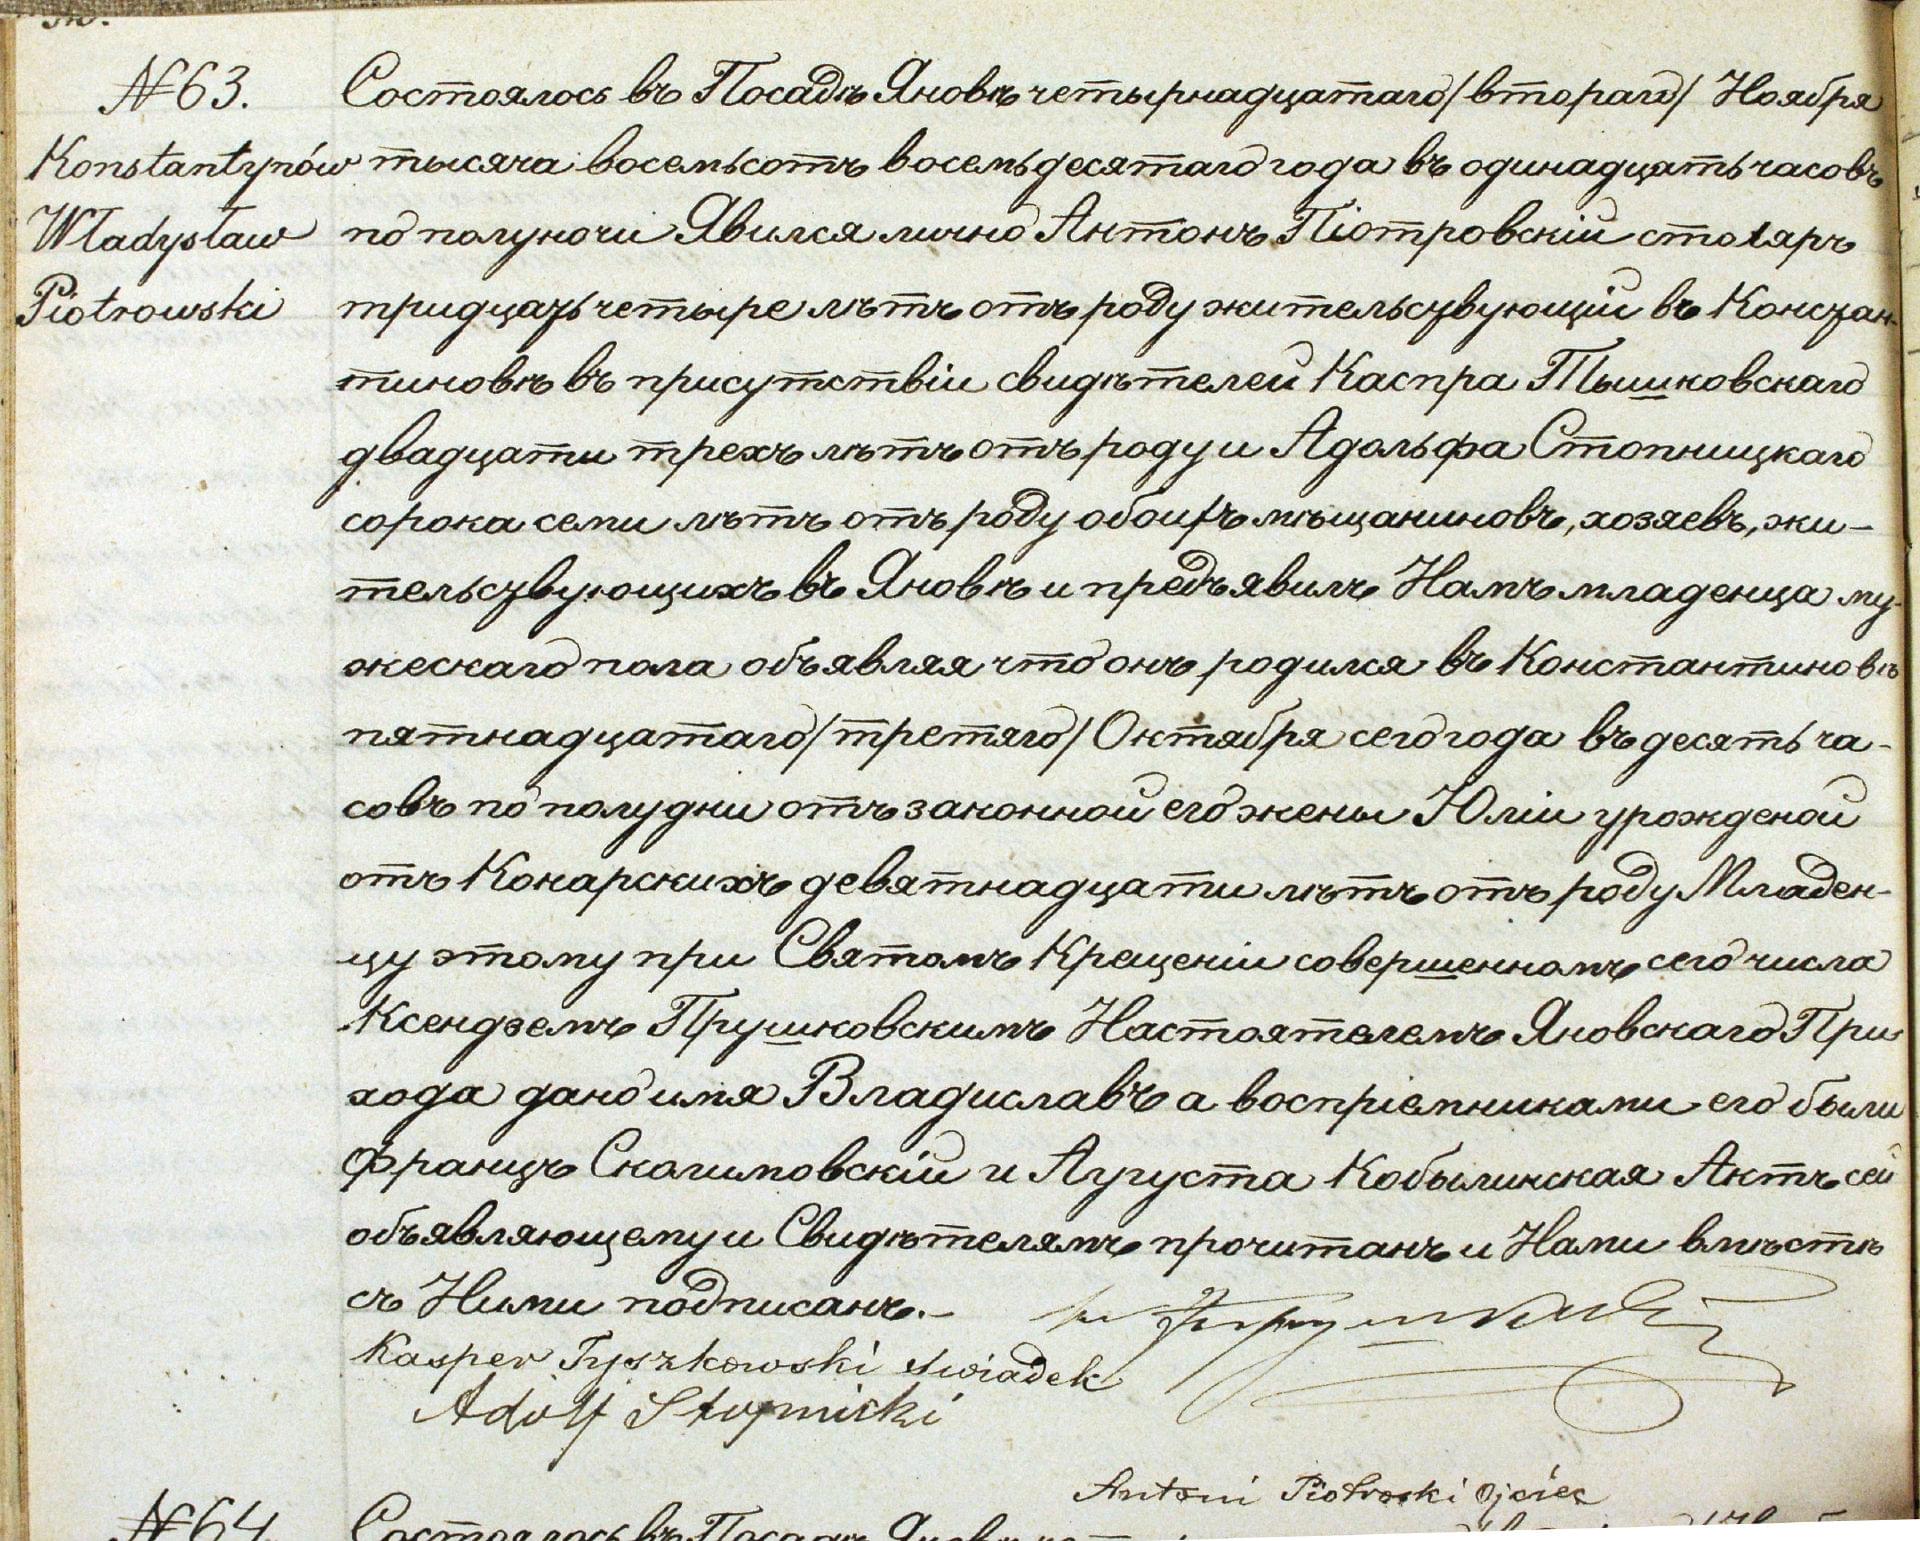 № 63.
Konstantynów
Władysław
Piotrowski
Состоялось въ Посадѣ Яновѣ четырнадцатаго /втораго/ Ноября
тысяча восемьсотъ восемьдесятаго года въ одинадцать часовъ
по полуночи Явился лично Антонъ Піотровскій столяръ
тридцать четыре лѣтъ отъ роду жительствующій въ Констан-
тиновѣ въ присутствіи свидѣтелей Каспра Тышковскаго
двадцати трехъ лѣтъ отъ роду и Адольфа Стопницкаго
сорока семи лѣтъ отъ роду обоихъ мѣщаниновъ, хозяевъ, жи-
тельствующихъ въ Яновѣ и предъявилъ Намъ младенца му-
жескаго пола объявляя что онъ родился въ Константиновѣ
пятнадцатаго /третяго/ Октября сего года въ десять ча-
совъ по полудни отъ законной его жены Юліи урожденой
отъ Конарскихъ девятнадцати лѣтъ отъ роду Младен-
цу этому при Святомъ Крещеніи совершенномъ сего числа
Ксендземъ Прушковскимъ Настоятелемъ Яновскаго При
хода дано имя Владиславъ а воспріемниками его были
Францъ Сколимовскій и Аугуста Кобылинская Актъ сей
объявляющему и Свидѣтелямъ прочитанъ и Нами вмѣстѣ
съ Ними подписанъ.-
Kasper Tyszkowski świadek
Adolf Stopnicki
Antoni Piotroski Ojciec
№ 64
Состоялось въ Посадѣ Яновѣ